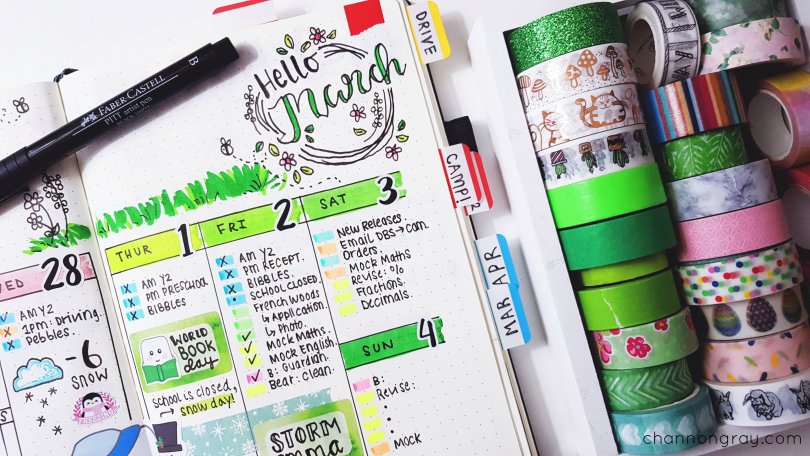 DRIVE
B
FABER-CASTELL
PITT artist pen
Hello
March
CAMP!
MAR APR
28
AM Y2
1pm: Driving.
Pebbles.
-6
SNOW
THUR 1
AM Y2
PM PRESCHOOL
BIBBLES
WORLD
BOOK
day
school is closed,
→ snow day!
FRI 2
AM Y2
PM RECEPT.
BIBBLES.
SCHOOL CLOSED.
French woods
↳ Application.
↳ Photo.
Mock Maths.
Mock English.
B: Guardian.
Bear: Clean.
STORM
SAT 3
New Releases.
Email DBS → Cam.
Orders.
Mock Maths
Revise: %
Fractions.
Decimals.
SUN 4
B:
Revise:
Mock
channongray.com